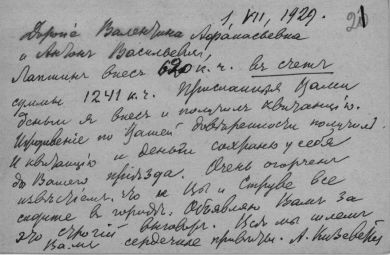 1, VII, 1929.
21
Дорогие Валентина Афанасьевна
и Антон Васильевич,
Лапшин внес 620 к.ч. в счет
суммы 1241 к.ч. Присланныя Вами
деньги я внес и получил квитанцию.
Иждивение по Вашей доверенности получил.
И квитанцию и деньги сохраню у себя
до Вашего приезда. Очень огорчен
известием, что и Вы и Струве все
сидите в городе. Объявляю Вам за
это строгий выговор. Все мы шлем
Вам сердечные приветы. А. Кизеветтер